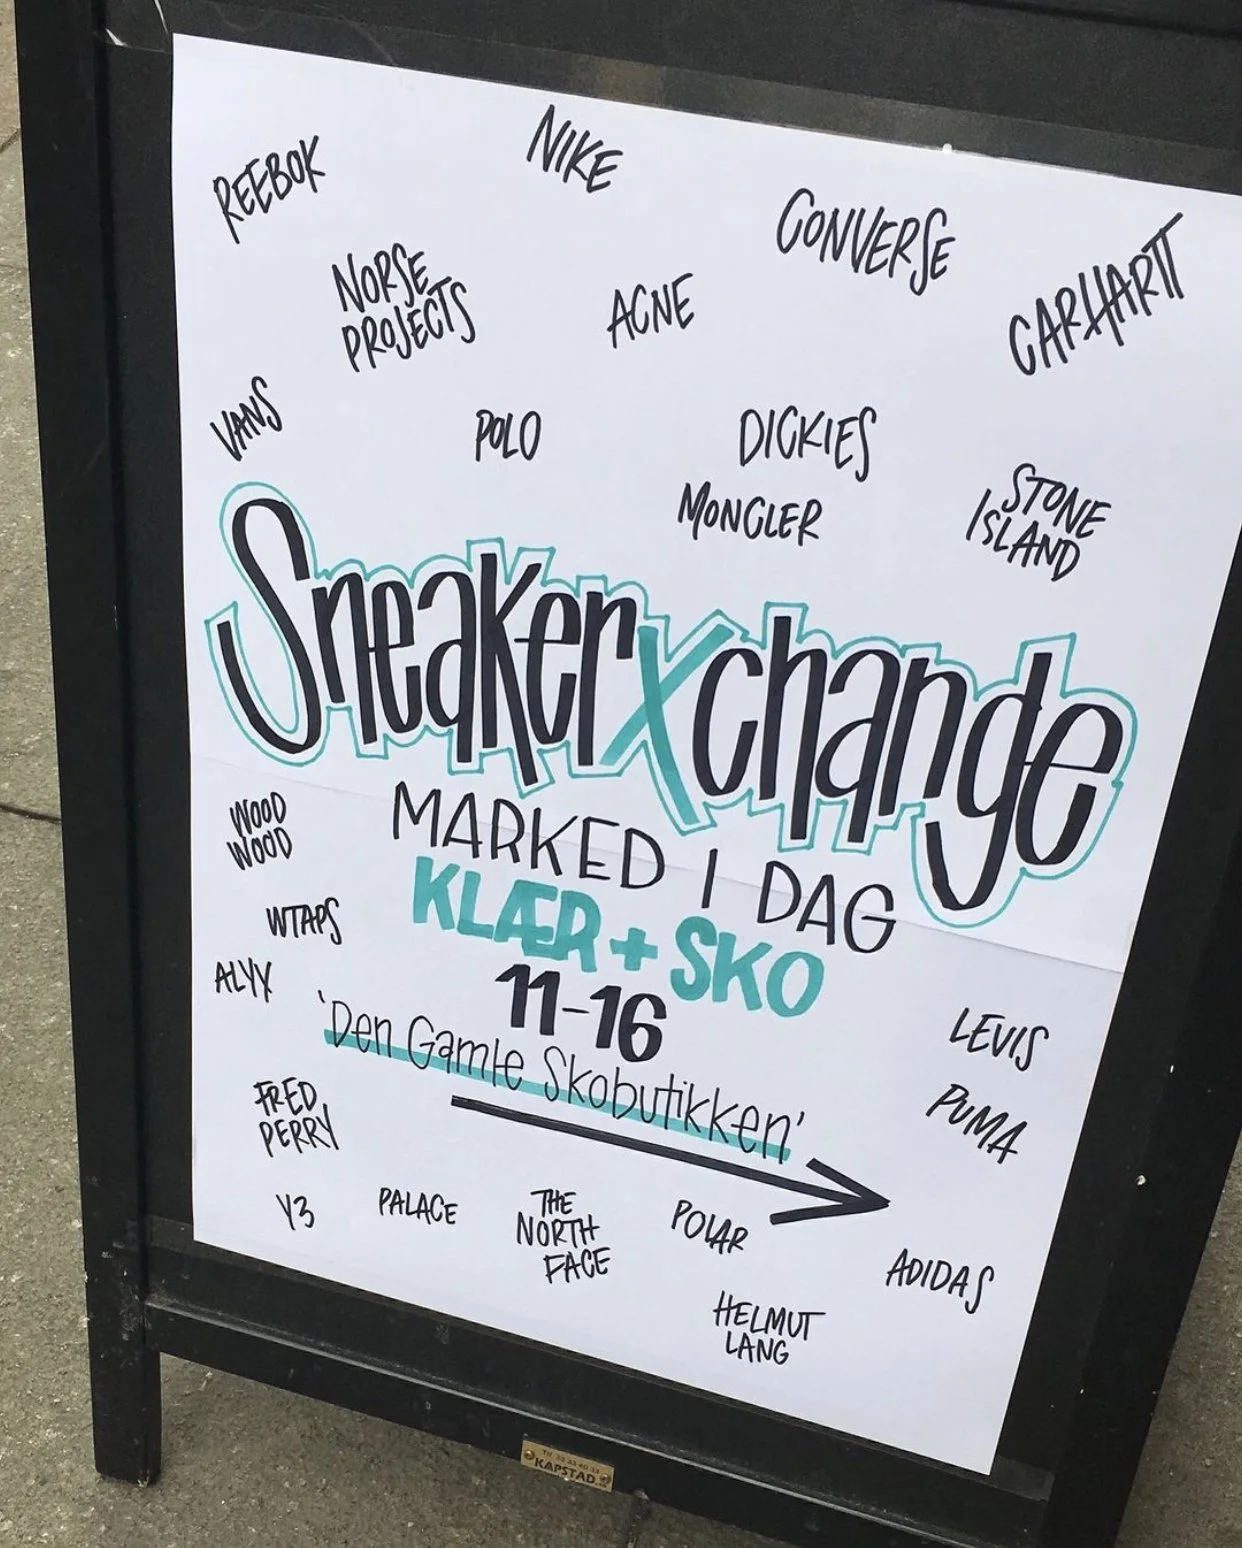 REEBOK
NIKE
CONVERSE
CARHARTT
NORSE
PROJECTS
ACNE
VANS
POLO
DICKIES
MONCLER
STONE
ISLAND
SneakerXchange
MARKED I DAG
KLÆR + SKO
11-16
'Den Gamle Skobutikken'
WOOD
WOOD
WTAPS
ALYX
FRED
PERRY
LEVIS
PUMA
Y3
PALACE
THE
NORTH
FACE
POLAR
ADIDAS
HELMUT
LANG
KAPSTAD